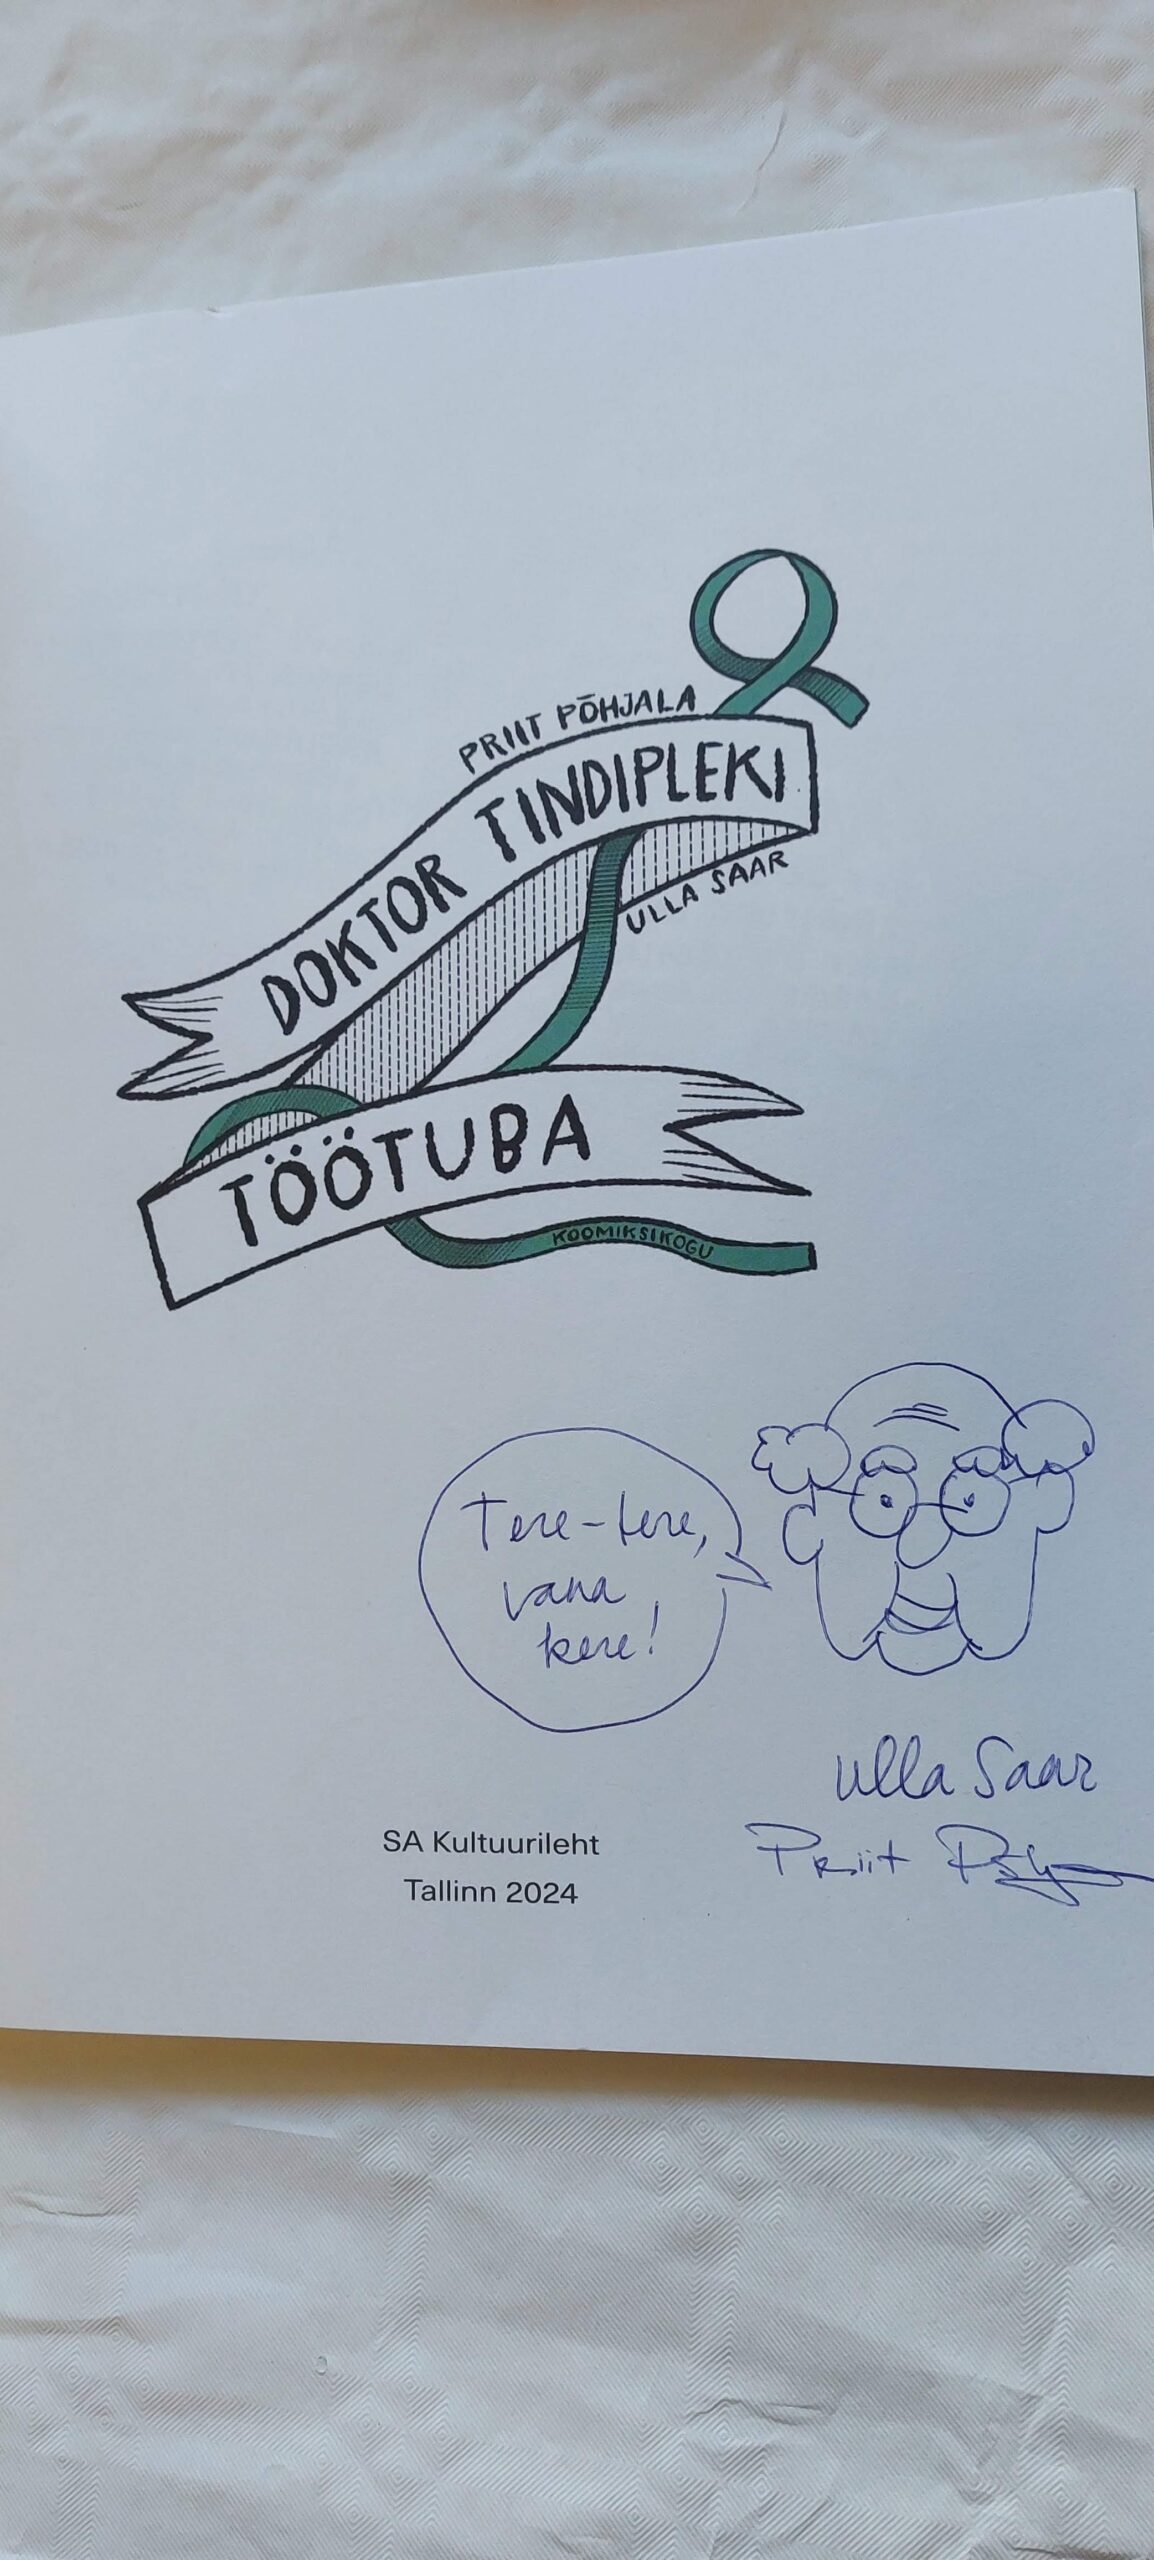 PRIIT PÕHJALA
DOKTOR TINDIPLEKI
ULLA SAAR
TÖÖTUBA
KOOMIKSIKOGU
Tere-tere,
vana
kere!
Ulla Saar
Priit
SA Kultuurileht
Tallinn 2024